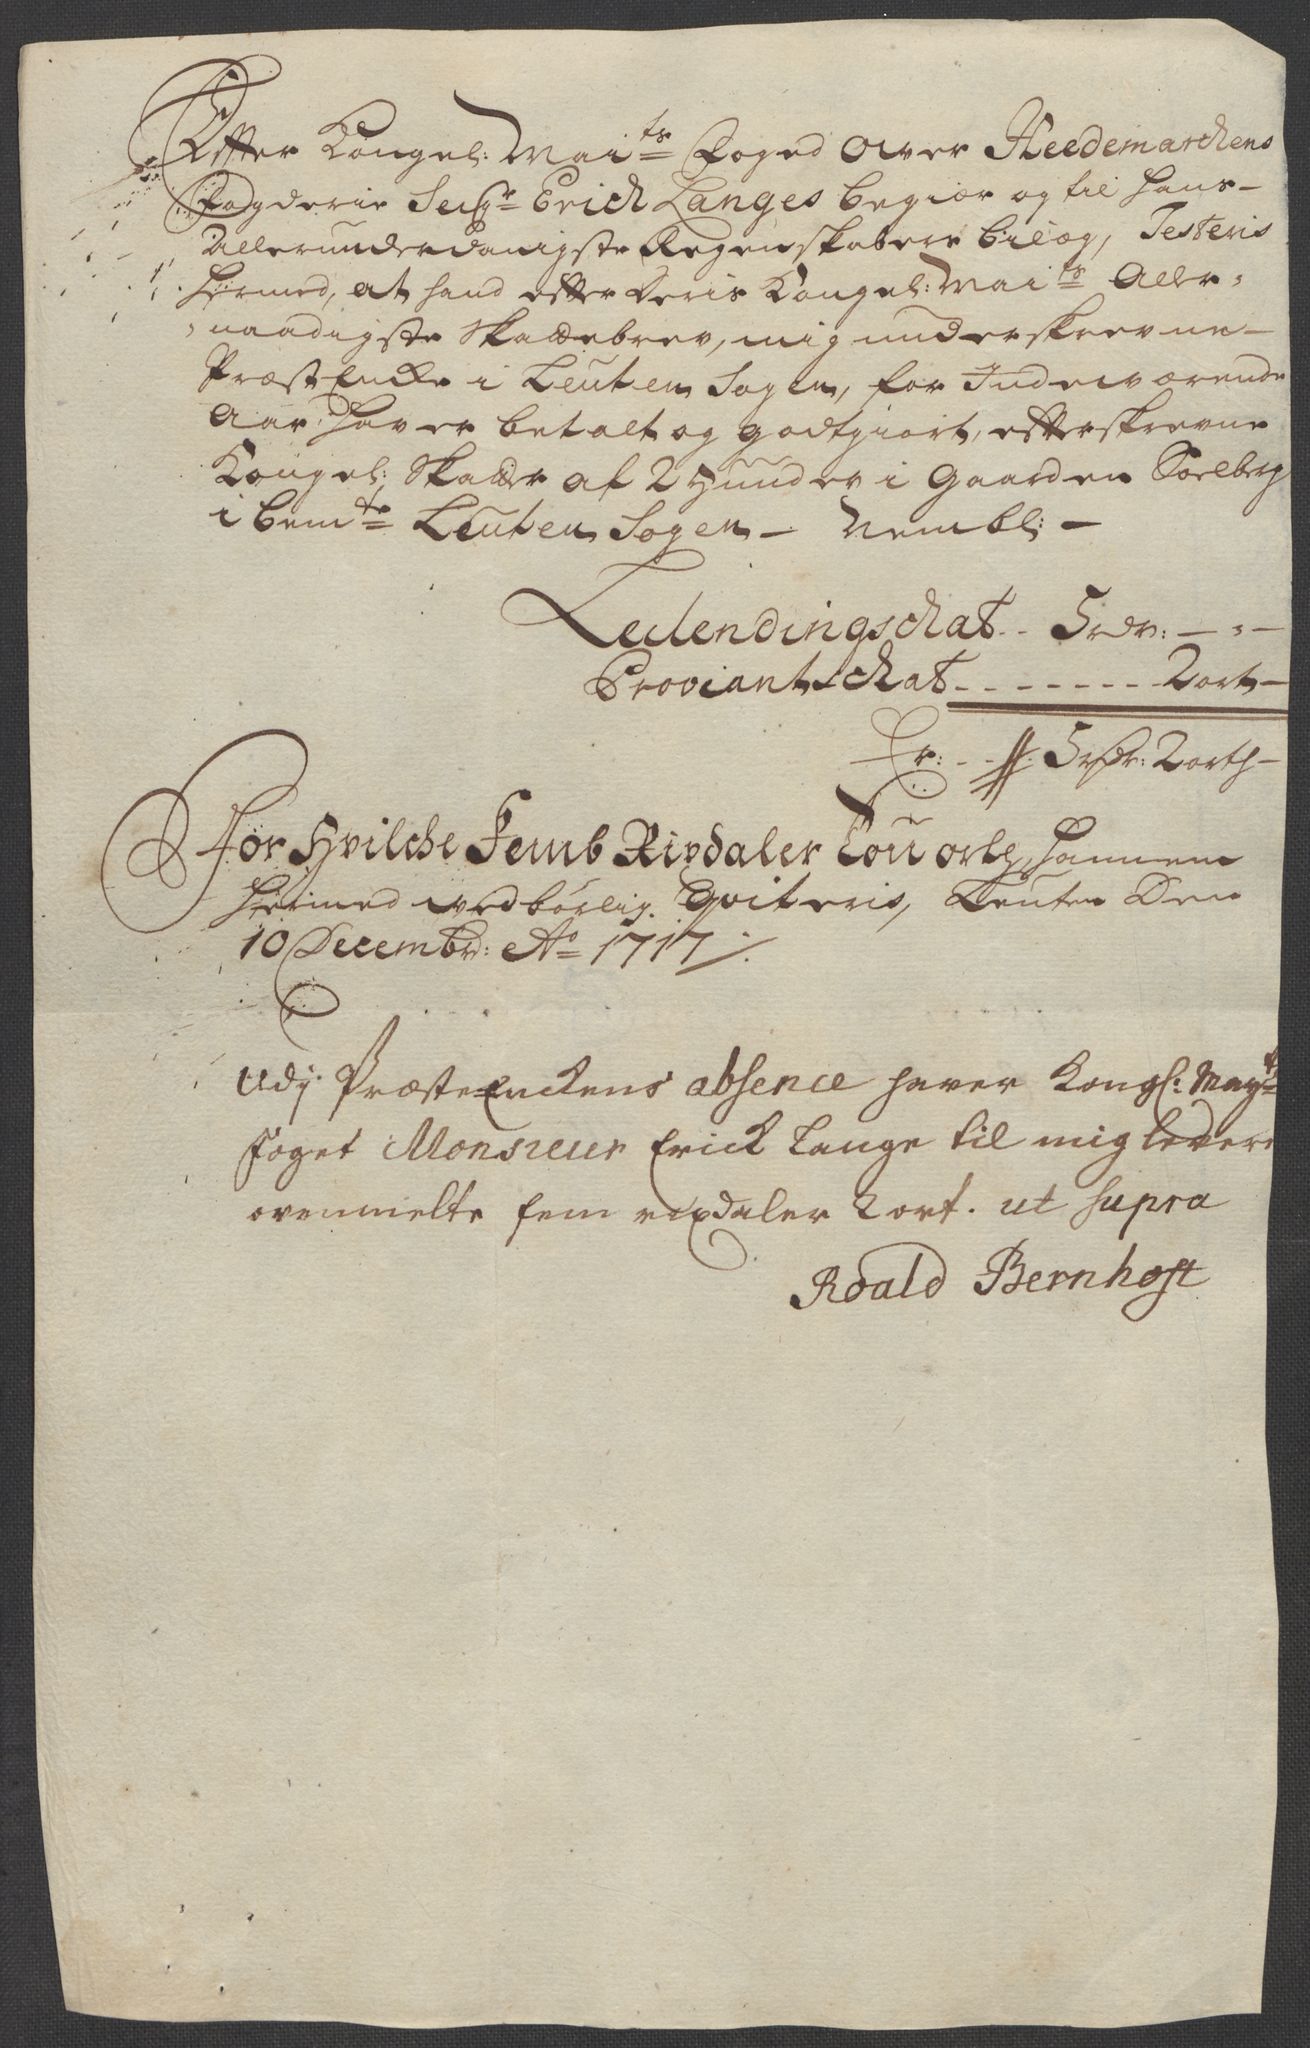 Effter Kongel: Mai^ts Foged over Heedemarchens
Fogderie Seigr Erich Langes begiær og til hans
Allerunderdanigste Regenskabers bilæg, Testeris
hermed, at hand efter Deris Kongel: Mai^ts Aller=
=naadigste Skattebrev, mig underskrevne
Præst Encke i Leuten Sogen, for Indeværende
Aar, haver betalt og godtgiort, efterskrevne
Kongel: Skatter af 2 Hunder i Gaarden Soelberg
i bemte Leuten Sogen - Nembl: -
Ledendingschat .. 5 rdr: - " -
Proviantschat - - - - - - - 2 ort -
Er: - - 5 rdr: 2 orth -
For Hvilche Femb Rixdaler Tou orth, hannem
hermed vedbørlig Qviteris, Leuten Den
10 Decembr: Ao 1717 /.
Udj Præste-Enckens absence haver Kongl: May^ts
Foget Monsieur Erick Lange til mig levert
ovenmelte fem rixdaler 2 ort. ut supra
Roald Bernhoft